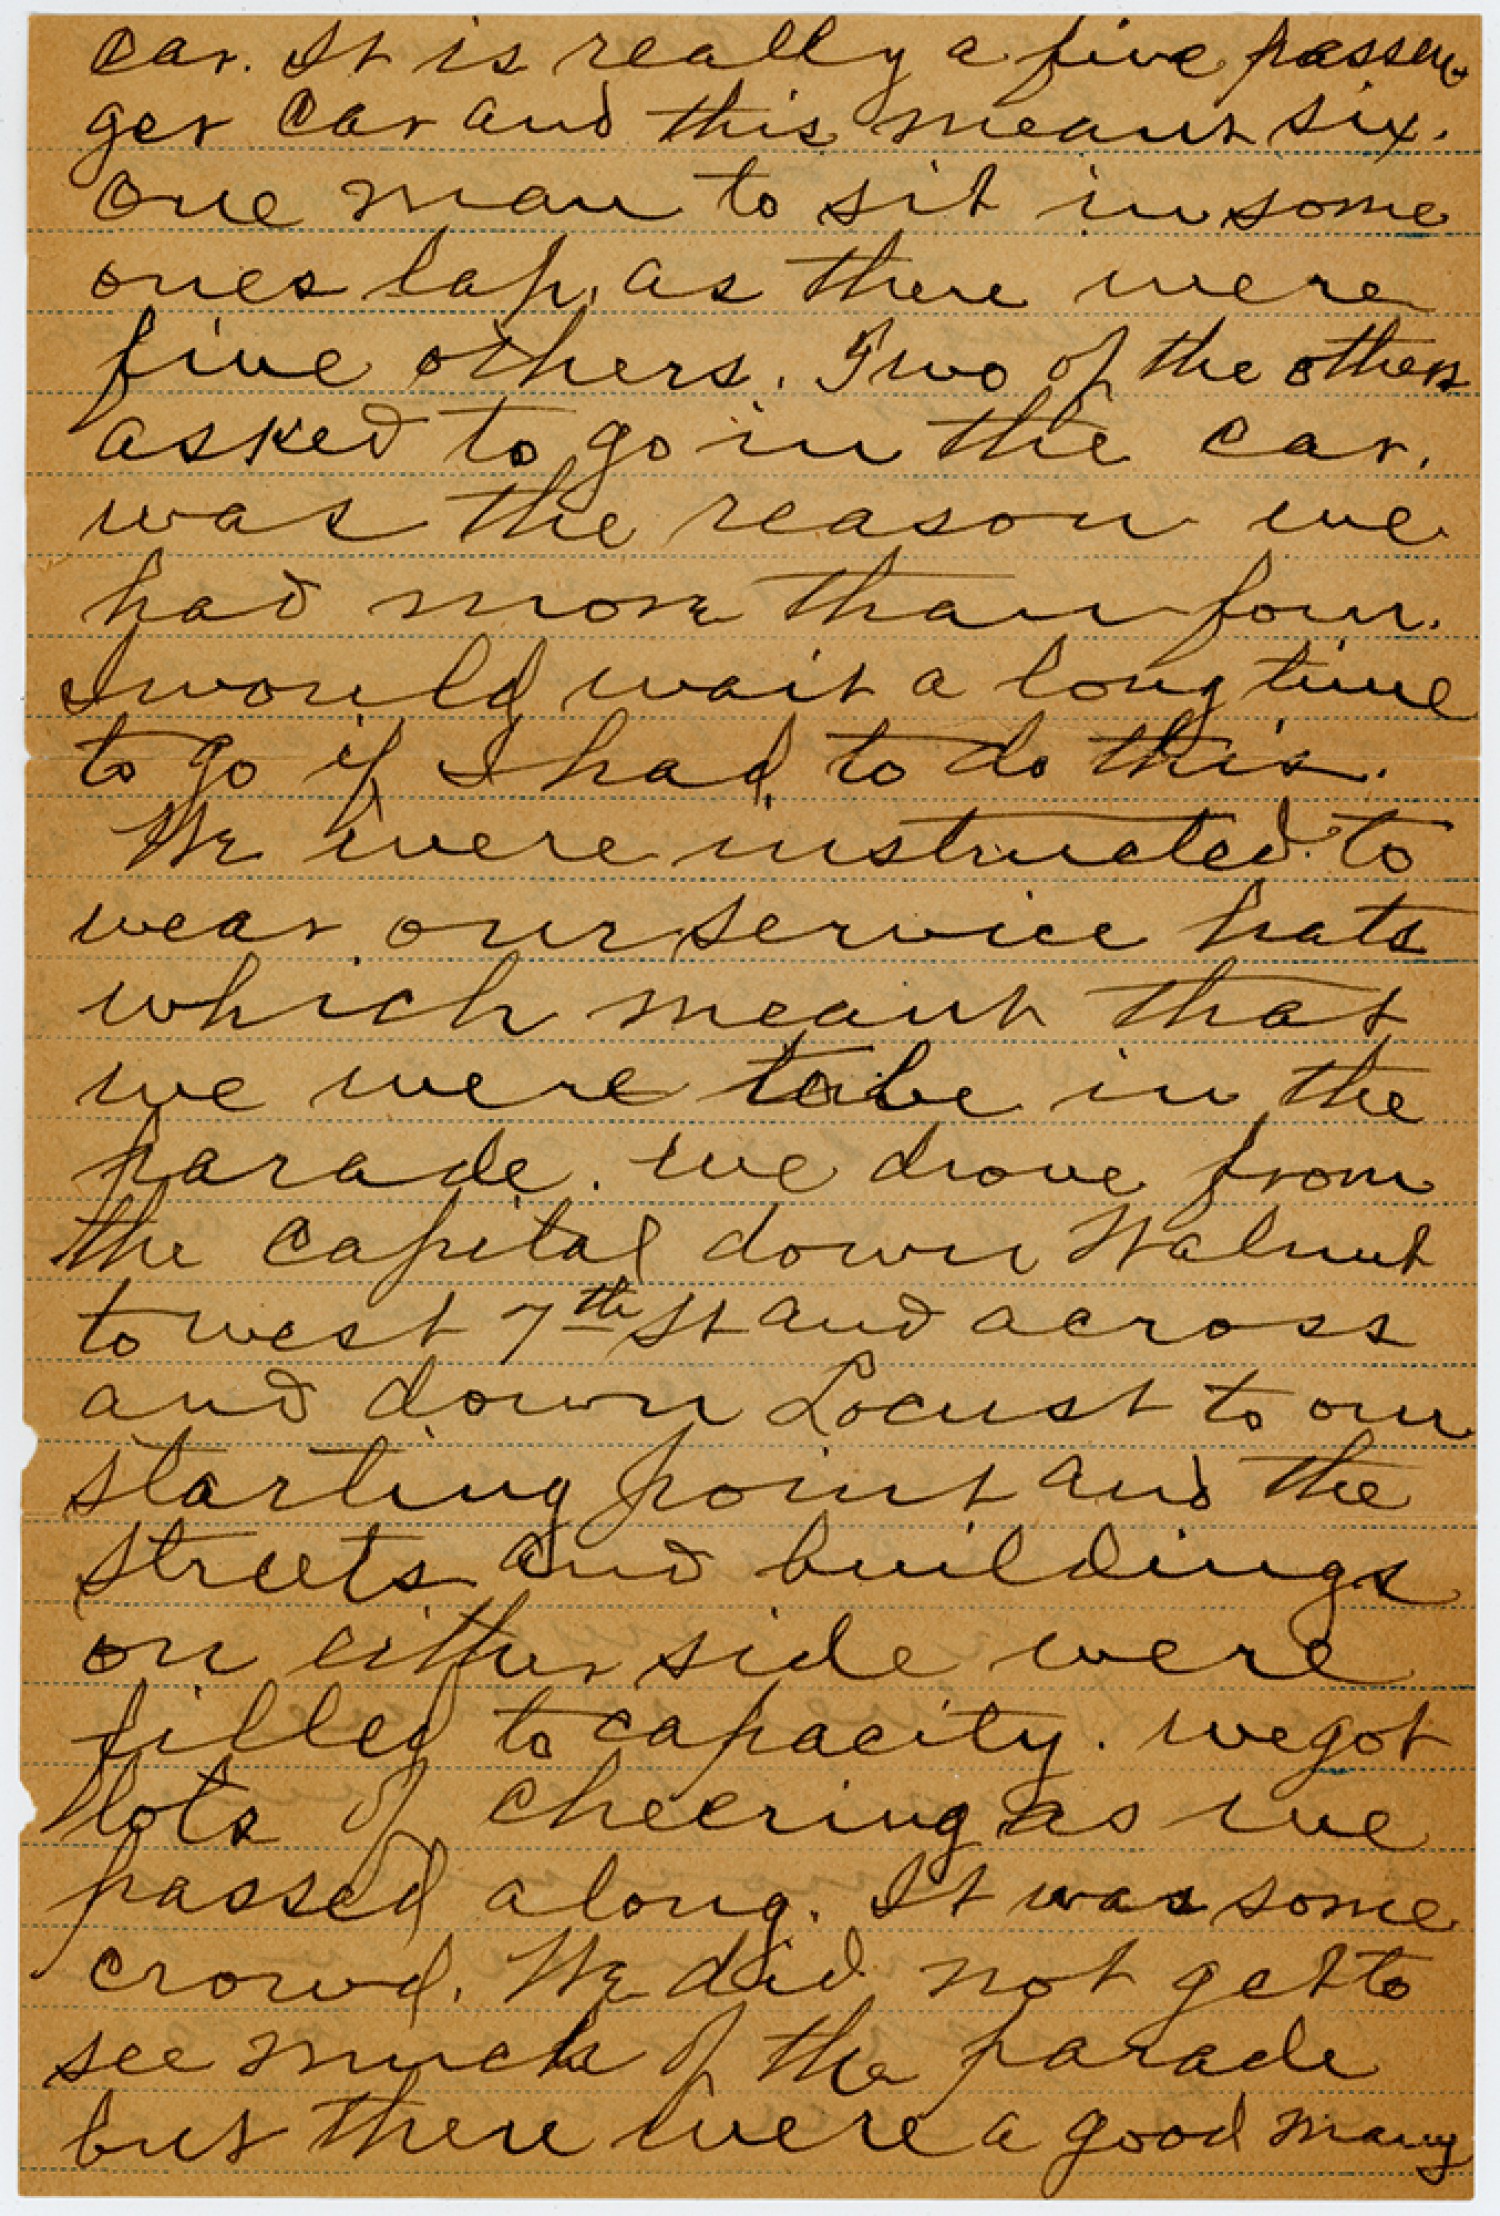 car. It is really a five passen-
ger car and this meant six.
one man to sit in some
ones lap, as there were
five others. Two of the others
asked to go in the car.
was the reason we
had more than four.
I would wait a long time
to go if I had to do this.
We were instructed to
wear our service hats
which meant that
we were to be in the
parade. we drove from
the capital down Walnut
to west 7th St and across
and down Locust to our
starting point and the
streets and buildings
on either side were
filled to capacity. we got
lots of cheering as we
passed along. It was some
crowd. We did not get to
see much of the parade
but there were a good many